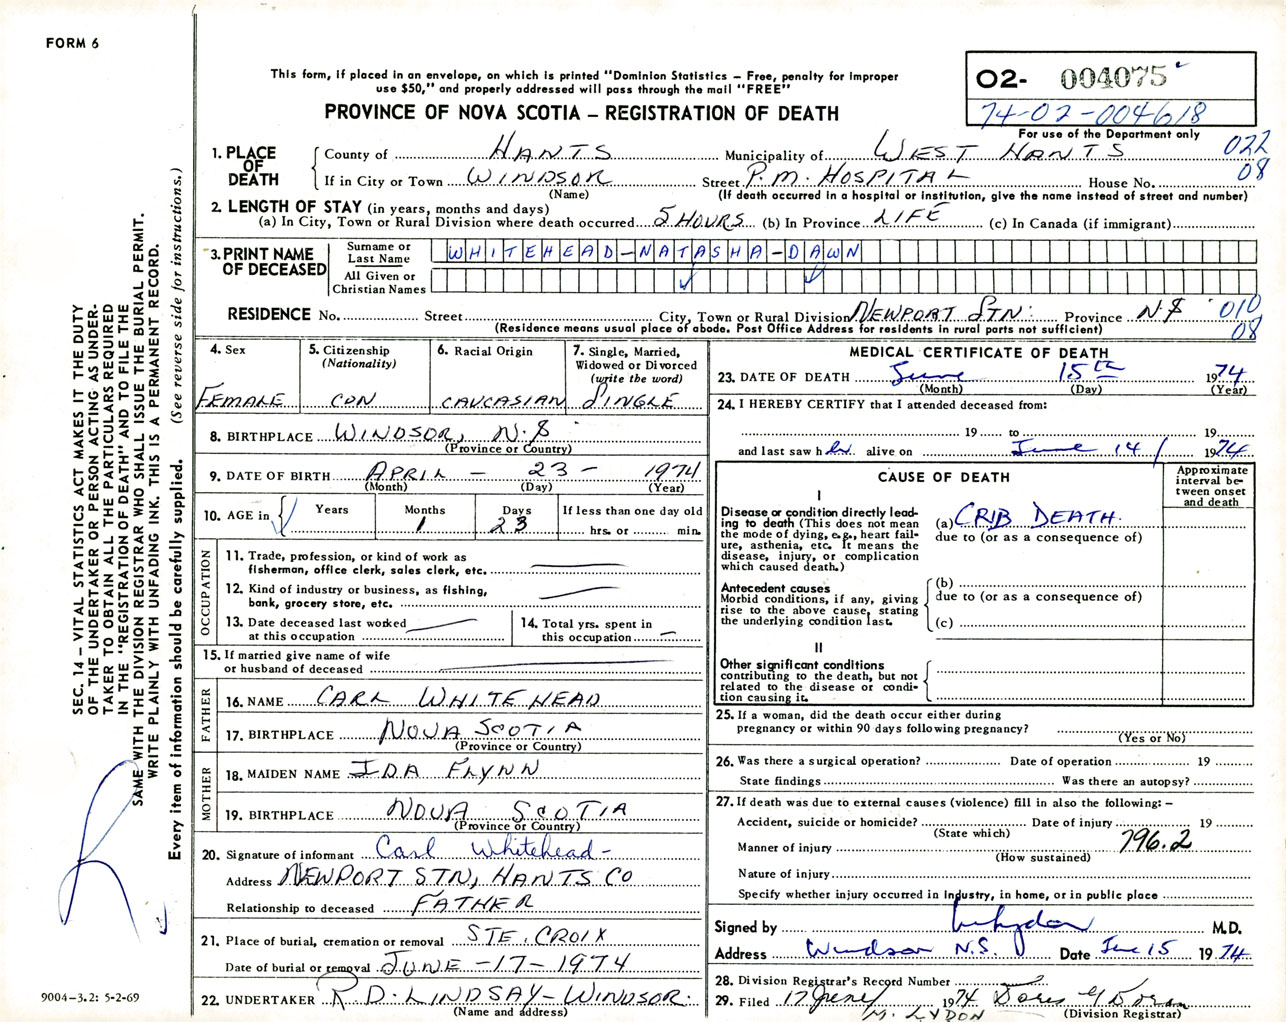 FORM 6
This form, if placed in an envelope, on which is printed "Dominion Statistics – Free, penalty for improper
use $50," and properly addressed will pass through the mail "FREE"
PROVINCE OF NOVA SCOTIA – REGISTRATION OF DEATH
O2- 004075
74-02-004618
For use of the Department only
022
08
1. PLACE OF DEATH
County of HANTS Municipality of WEST HANTS
If in City or Town WINDSOR Street P.M. HOSPITAL House No.
(Name) (If death occurred in a hospital or institution, give the name instead of street and number)
2. LENGTH OF STAY (in years, months and days)
(a) In City, Town or Rural Division where death occurred 5 HOURS (b) In Province LIFE (c) In Canada (if immigrant)
3. PRINT NAME OF DECEASED
Surname or Last Name WHITEHEAD-NATASHA-DAWN
All Given or Christian Names
RESIDENCE No. Street City, Town or Rural Division NEWPORT STN: Province N.S 010
(Residence means usual place of abode. Post Office Address for residents in rural parts not sufficient) 08
4. Sex
FEMALE
5. Citizenship
(Nationality)
CDN
6. Racial Origin
CAUCASIAN
7. Single, Married,
Widowed or Divorced
(write the word)
SINGLE
8. BIRTHPLACE WINDSOR, N.S
(Province or Country)
9. DATE OF BIRTH APRIL – 23 – 1974
(Month) (Day) (Year)
10. AGE in
Years
Months
1
Days
23
If less than one day old
hrs. or min.
OCCUPATION
11. Trade, profession, or kind of work as
fisherman, office clerk, sales clerk, etc.
12. Kind of industry or business, as fishing,
bank, grocery store, etc.
13. Date deceased last worked
at this occupation
14. Total yrs. spent in
this occupation
15. If married give name of wife
or husband of deceased
FATHER
16. NAME CARL WHITEHEAD
17. BIRTHPLACE NOVA SCOTIA
(Province or Country)
MOTHER
18. MAIDEN NAME IDA FLYNN
19. BIRTHPLACE NOVA SCOTIA
(Province or Country)
20. Signature of informant Carl Whitehead-
Address NEWPORT STN, HANTS CO
Relationship to deceased FATHER
21. Place of burial, cremation or removal STE. CROIX
Date of burial or removal JUNE -17- 1974
22. UNDERTAKER R D. LINDSAY – WINDSOR.
(Name and address)
MEDICAL CERTIFICATE OF DEATH
23. DATE OF DEATH June 15th 1974
(Month) (Day) (Year)
24. I HEREBY CERTIFY that I attended deceased from:
19 to 19
and last saw her alive on June 14 1974
CAUSE OF DEATH
Approximate
interval be-
tween onset
and death
I
Disease or condition directly lead-
ing to death (This does not mean
the mode of dying, e.g., heart fail-
ure, asthenia, etc. It means the
disease, injury, or complication
which caused death.)
(a) CRIB DEATH.
due to (or as a consequence of)
Antecedent causes
Morbid conditions, if any, giving
rise to the above cause, stating
the underlying condition last.
(b)
due to (or as a consequence of)
(c)
II
Other significant conditions
contributing to the death, but not
related to the disease or condi-
tion causing it.
25. If a woman, did the death occur either during
pregnancy or within 90 days following pregnancy?
(Yes or No)
26. Was there a surgical operation? Date of operation 19
State findings Was there an autopsy?
27. If death was due to external causes (violence) fill in also the following: –
Accident, suicide or homicide? Date of injury 19
(State which)
796.2
Manner of injury
(How sustained)
Nature of injury
Specify whether injury occurred in industry, in home, or in public place
Signed by M.D.
Address Windsor N.S. Date June 15 1974
28. Division Registrar's Record Number
29. Filed 17 June 1974 Doris
M. LYDON (Division Registrar)
SEC. 14 – VITAL STATISTICS ACT MAKES IT THE DUTY
OF THE UNDERTAKER OR PERSON ACTING AS UNDER-
TAKER TO OBTAIN ALL THE PARTICULARS REQUIRED
IN THE "REGISTRATION OF DEATH" AND TO FILE THE
SAME WITH THE DIVISION REGISTRAR WHO SHALL ISSUE THE BURIAL PERMIT.
WRITE PLAINLY WITH UNFADING INK. THIS IS A PERMANENT RECORD.
Every item of information should be carefully supplied. (See reverse side for instructions.)
9004-3.2: 5-2-69